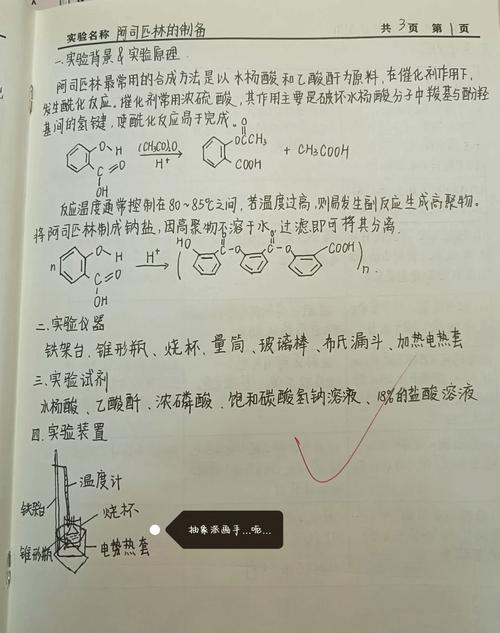 实验名称 阿司匹林的制备 共 3 页 第 1 页
一.实验背景&实验原理.
阿司匹林最常用的合成方法是以水杨酸和乙酸酐为原料,在催化剂作用下,
发生酰化反应。催化剂常用浓硫酸,其作用主要是破坏水杨酸分子中羧基与酚羟
基间的氢键,使酰化反应易于完成。
O-H C=O OH (CH3CO)2O H+ O OCCH3 COOH + CH3COOH
反应温度通常控制在80~85℃之间,若温度过高,则易发生副反应生成高聚物。
将阿司匹林制成钠盐,因高聚物不溶于水,过滤即可将其分离.
n O-H C=O OH H+ ( HO C-O O C-O O COOH )n.
二.实验仪器
铁架台、锥形瓶、烧杯、量筒、玻璃棒、布氏漏斗、加热电热套
三.实验试剂
水杨酸、乙酸酐、浓磷酸、饱和碳酸氢钠溶液、18%的盐酸溶液
四.实验装置
温度计
铁架台
烧杯
锥形瓶
电热套
抽象派画手...呃...